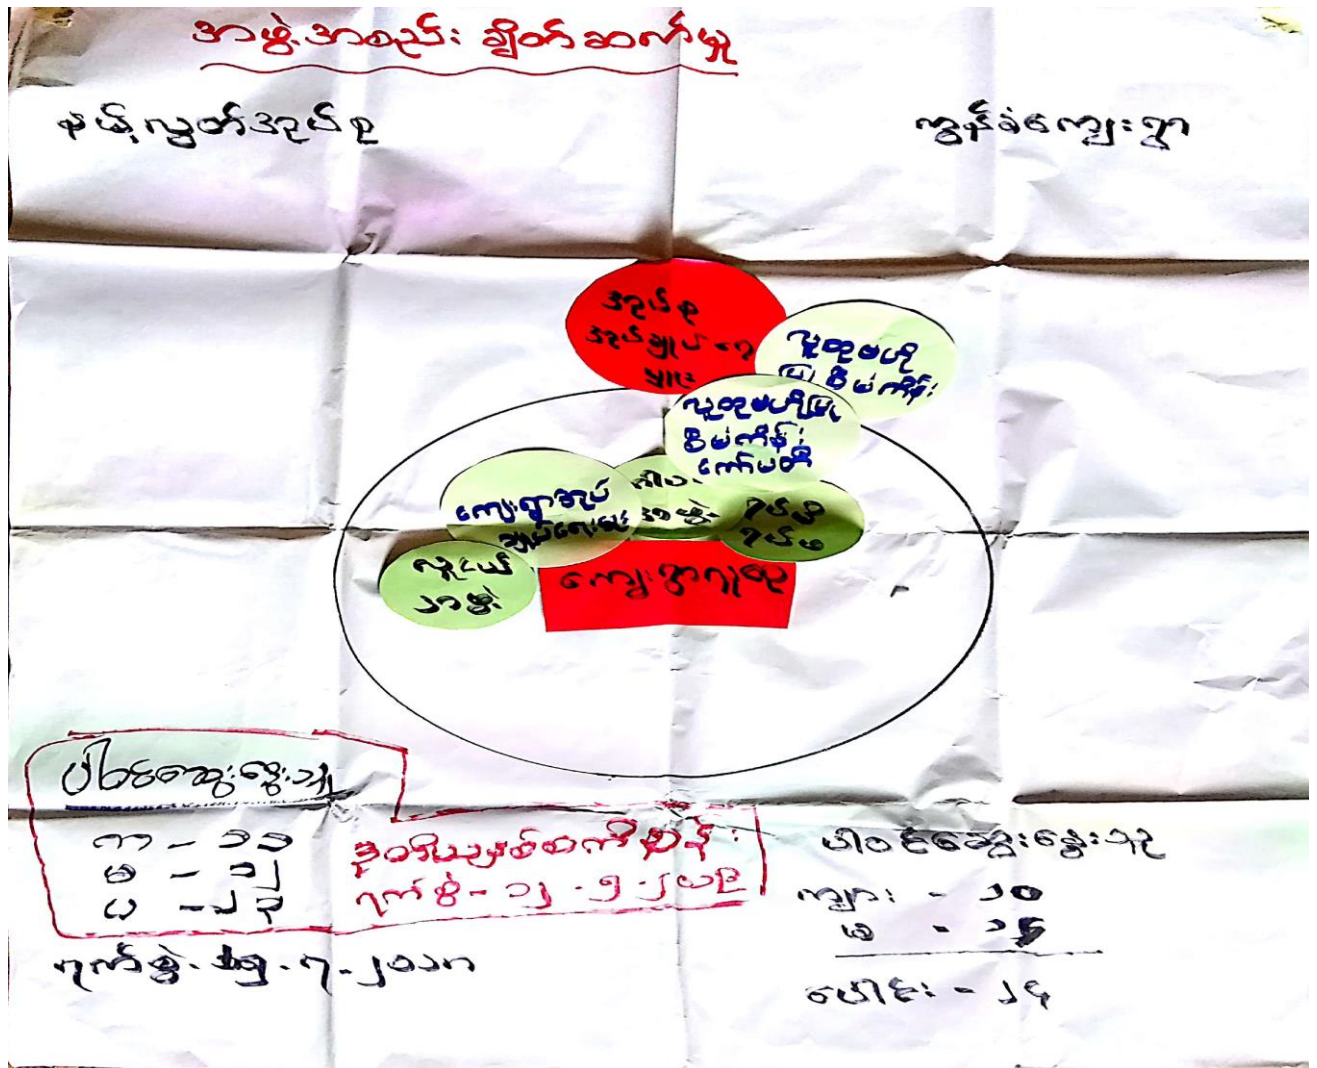 အဖွဲ့အစည်း ချိတ်ဆက်မှု
နယ့်လွှတ်အုပ်စု
ကွန်ခံကျေးရွာ
အုပ်စု
အုပ်ချုပ်ရေ
မှုး
လူထုဗဟို
ပြု စီမံကိန်း
လူထုဗဟိုပြု
စီမံကိန်း
ကော်မတီ
ကျေးရွာအုပ်
ချုပ်ရေးမှုး
အဖွဲ့
ရပ်မိ
ရပ်ဖ
လူငယ်
အဖွဲ့
ကျေးရွာလူထု
ပါဝင်ဆွေးနွေးသူ
ကာ - ၁၁
မ - ၁၂
ပ - ၂၃
ဒုတိယနှစ်စကီမှန်း
ရက်စွဲ - ၁၂.၅.၂၀၁၉
ရက်စွဲ - ၇ - ၂၀၁၈
ပါဝင်ဆွေးနွေးသူ
ကျား - ၁၀
မ - ၁၄
ပေါင်း - ၂၄